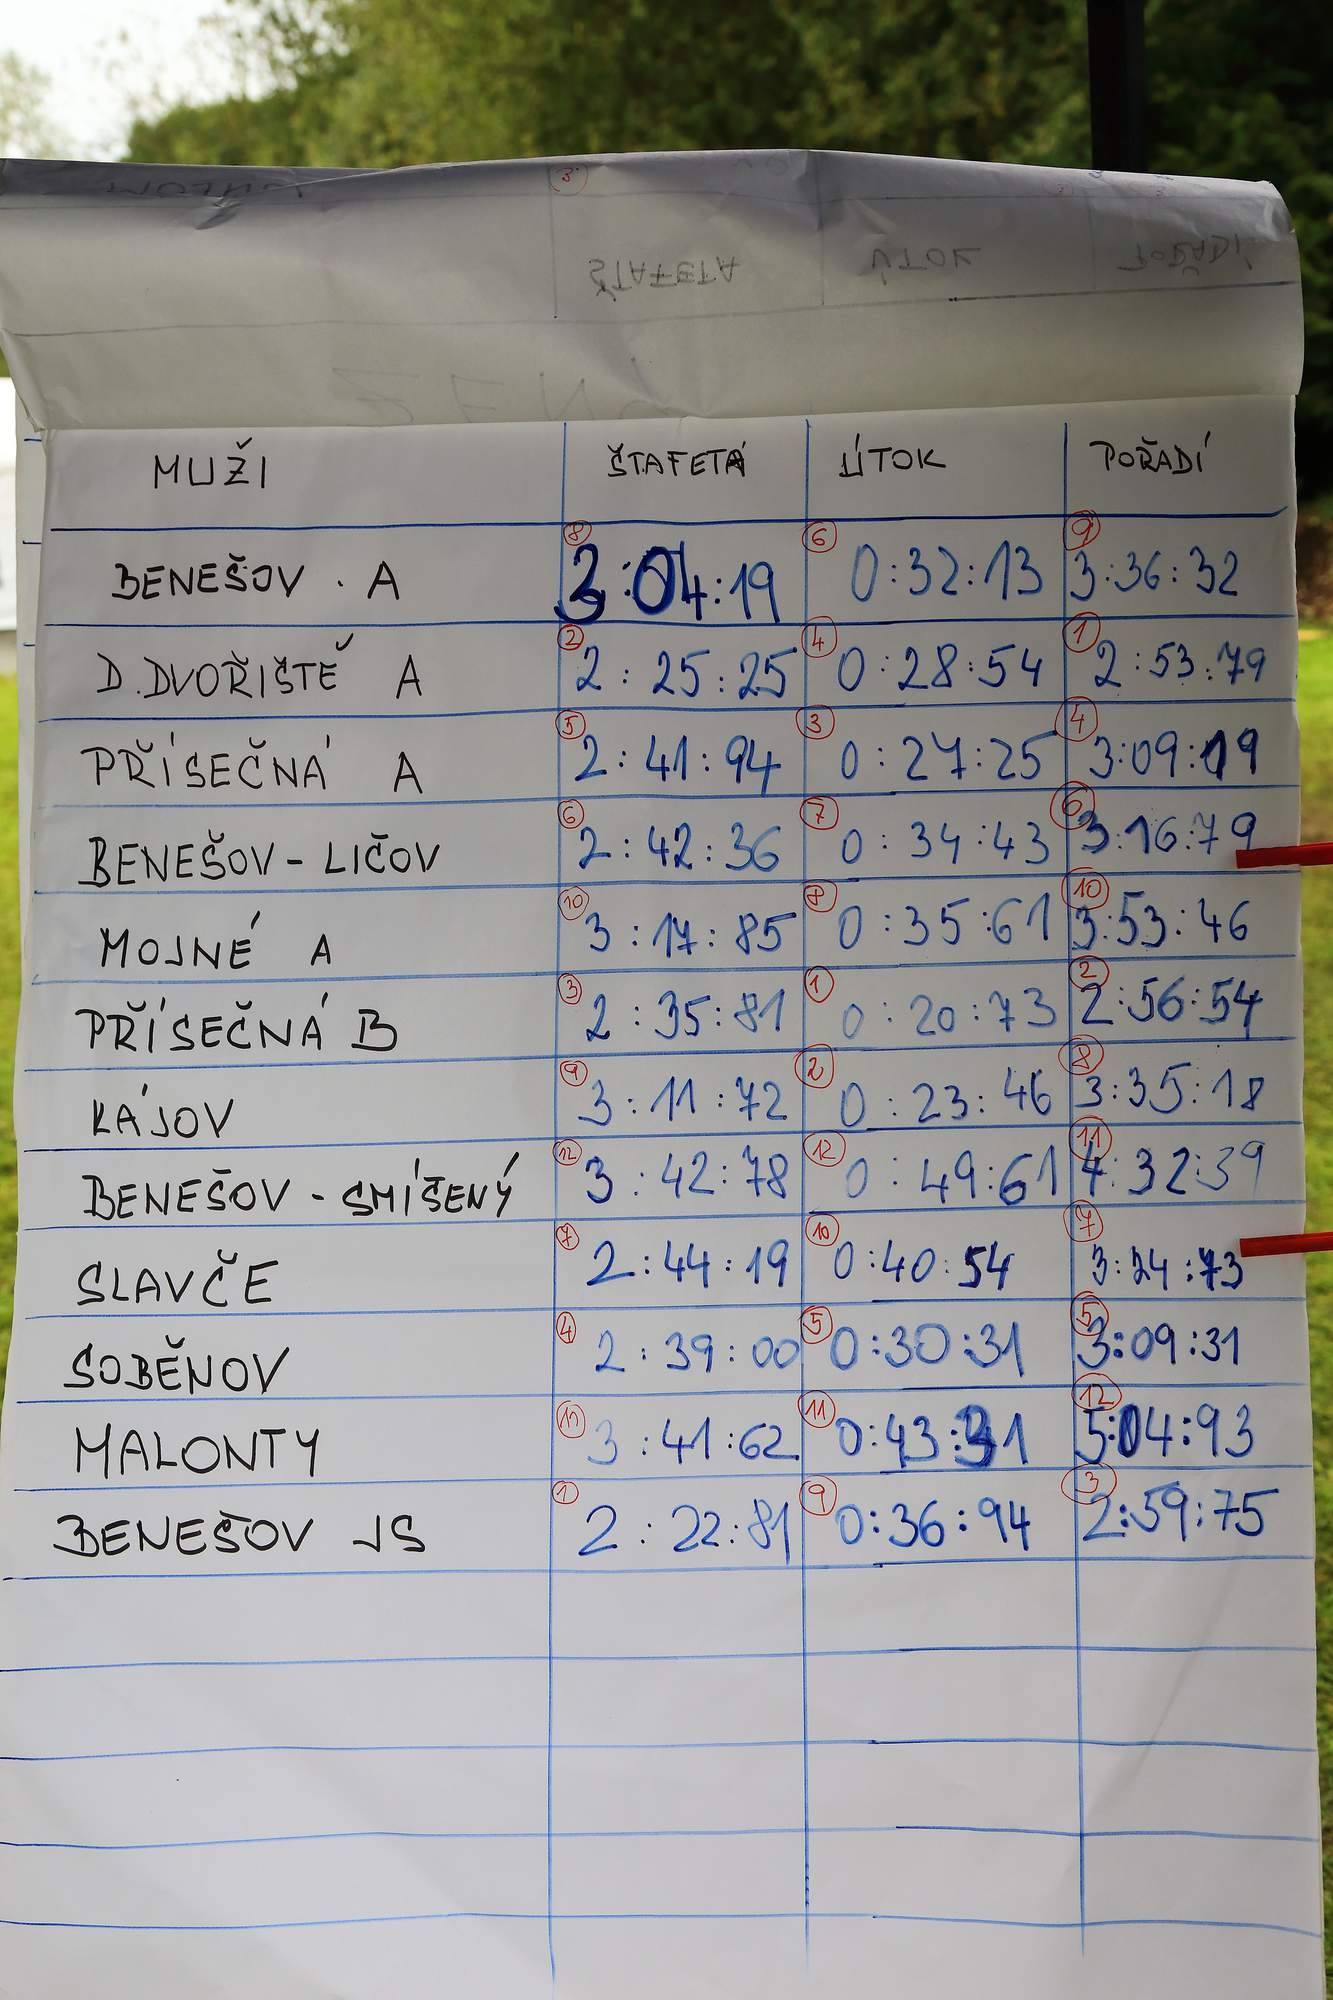 MUŽI ŠTAFETA ÚTOK POŘADÍ
BENEŠOV . A 8 3:04:19 6 0:32:13 9 3:36:32
D.DVOŘIŠTĚ A 2 2:25:25 4 0:28:54 1 2:53:79
PŘÍSEČNÁ A 5 2:41:94 3 0:27:25 4 3:09:19
BENEŠOV - LIČOV 6 2:42:36 7 0:34:43 6 3:16:79
MOJNÉ A 10 3:17:85 8 0:35:61 10 3:53:46
PŘÍSEČNÁ B 3 2:35:81 1 0:20:73 2 2:56:54
KÁJOV 9 3:11:72 2 0:23:46 8 3:35:18
BENEŠOV - SMÍŠENÝ 12 3:42:78 12 0:49:61 11 4:32:39
SLAVČE 7 2:44:19 10 0:40:54 7 3:24:73
SOBĚNOV 4 2:39:00 5 0:30:31 5 3:09:31
MALONTY 11 3:41:62 11 0:43:31 12 5:04:93
BENEŠOV JS 1 2:22:81 9 0:36:94 3 2:59:75